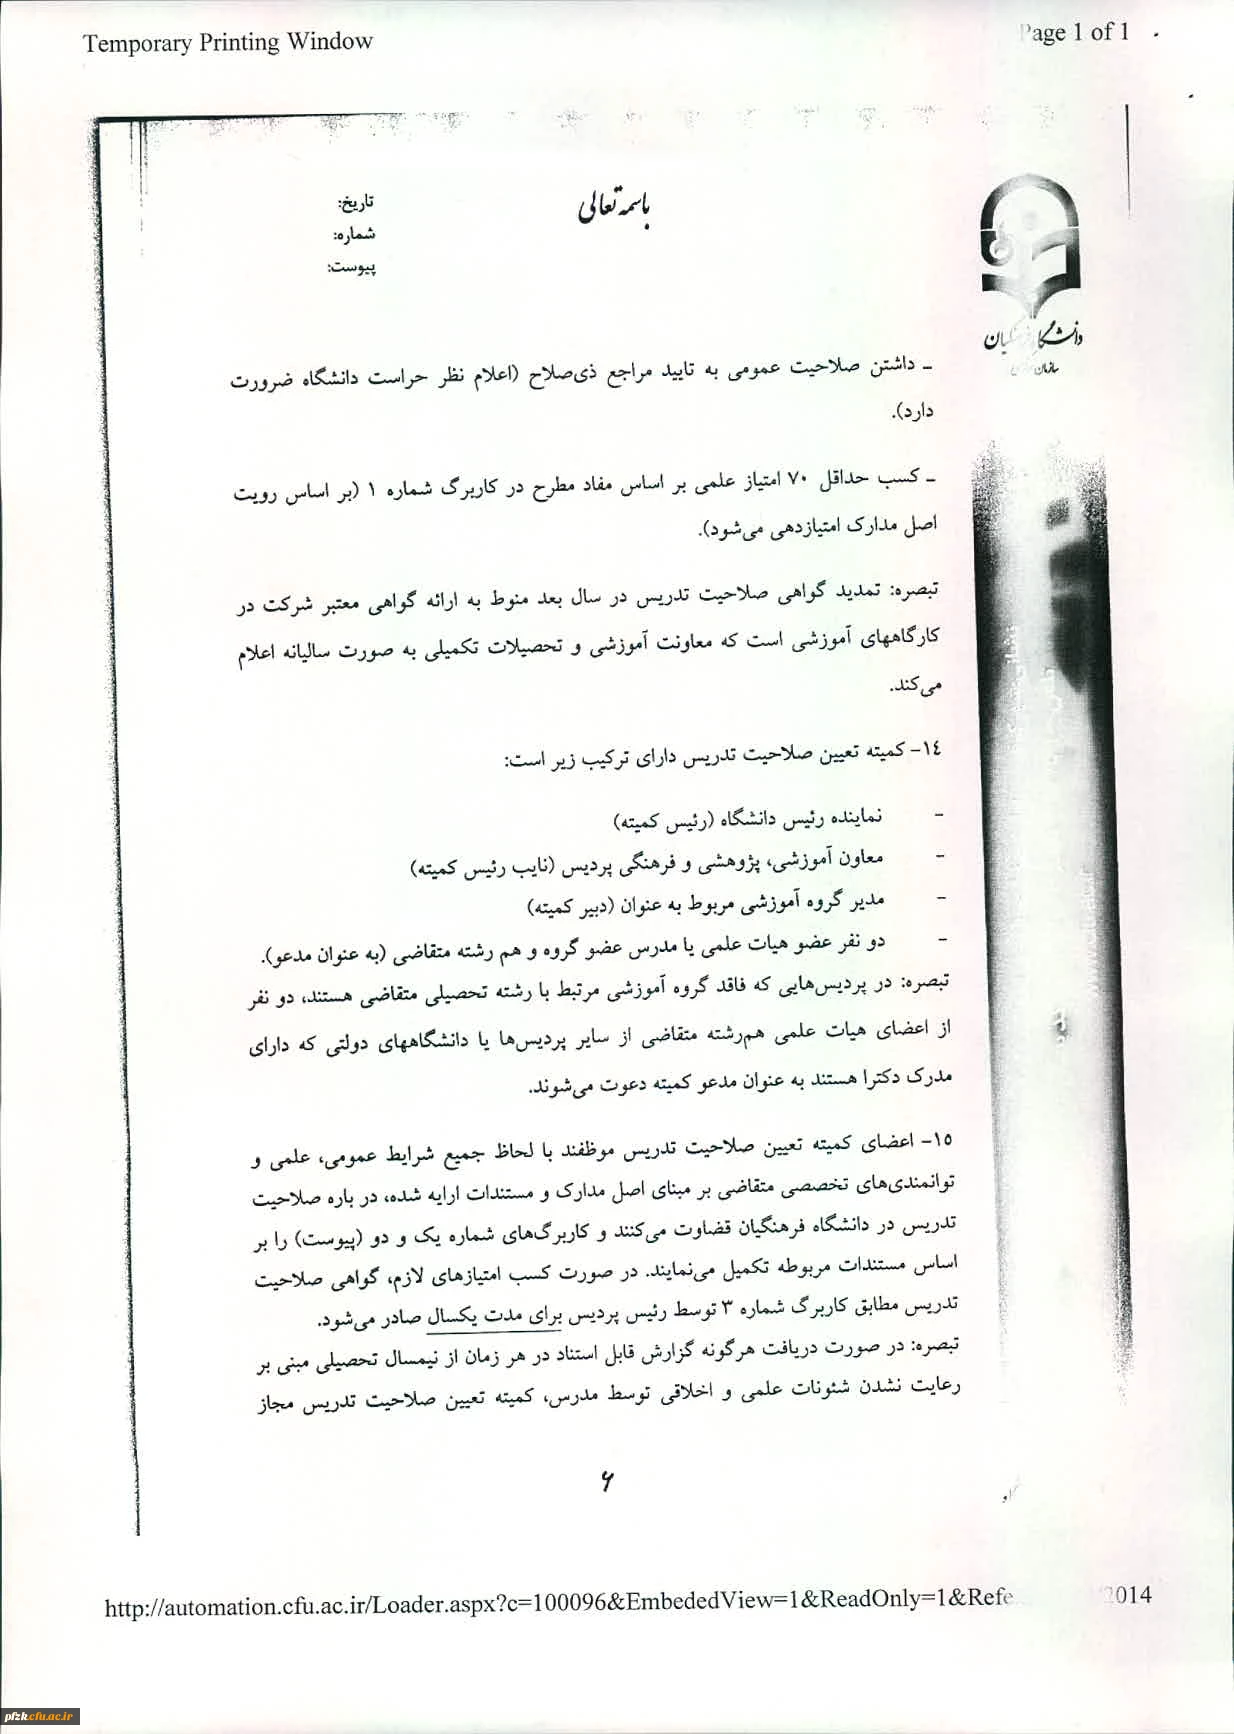 Temporary Printing Window
Page 1 of 1
باسمه تعالی
تاریخ:
شماره:
پیوست:
دانشگاه فرهنگیان
سازمان
ـ داشتن صلاحیت عمومی به تایید مراجع ذی‌صلاح (اعلام نظر حراست دانشگاه ضرورت
دارد).
ـ کسب حداقل ۷۰ امتیاز علمی بر اساس مفاد مطرح در کاربرگ شماره ۱ (بر اساس رویت
اصل مدارک امتیازدهی می‌شود).
تبصره: تمدید گواهی صلاحیت تدریس در سال بعد منوط به ارائه گواهی معتبر شرکت در
کارگاههای آموزشی است که معاونت آموزشی و تحصیلات تکمیلی به صورت سالیانه اعلام
می‌کند.
۱٤- کمیته تعیین صلاحیت تدریس دارای ترکیب زیر است:
- نماینده رئیس دانشگاه (رئیس کمیته)
- معاون آموزشی، پژوهشی و فرهنگی پردیس (نایب رئیس کمیته)
- مدیر گروه آموزشی مربوط به عنوان (دبیر کمیته)
- دو نفر عضو هیات علمی یا مدرس عضو گروه و هم رشته متقاضی (به عنوان مدعو).
تبصره: در پردیس‌هایی که فاقد گروه آموزشی مرتبط با رشته تحصیلی متقاضی هستند، دو نفر
از اعضای هیات علمی هم‌رشته متقاضی از سایر پردیس‌ها یا دانشگاههای دولتی که دارای
مدرک دکترا هستند به عنوان مدعو کمیته دعوت می‌شوند.
۱٥- اعضای کمیته تعیین صلاحیت تدریس موظفند با لحاظ جمیع شرایط عمومی، علمی و
توانمندی‌های تخصصی متقاضی بر مبنای اصل مدارک و مستندات ارایه شده، در باره صلاحیت
تدریس در دانشگاه فرهنگیان قضاوت می‌کنند و کاربرگ‌های شماره یک و دو (پیوست) را بر
اساس مستندات مربوطه تکمیل می‌نمایند. در صورت کسب امتیازهای لازم، گواهی صلاحیت
تدریس مطابق کاربرگ شماره ۳ توسط رئیس پردیس برای مدت یکسال صادر می‌شود.
تبصره: در صورت دریافت هرگونه گزارش قابل استناد در هر زمان از نیمسال تحصیلی مبنی بر
رعایت نشدن شئونات علمی و اخلاقی توسط مدرس، کمیته تعیین صلاحیت تدریس مجاز
۶
http://automation.cfu.ac.ir/Loader.aspx?c=100096&EmbededView=1&ReadOnly=1&Refe
2014
pfzk.cfu.ac.ir